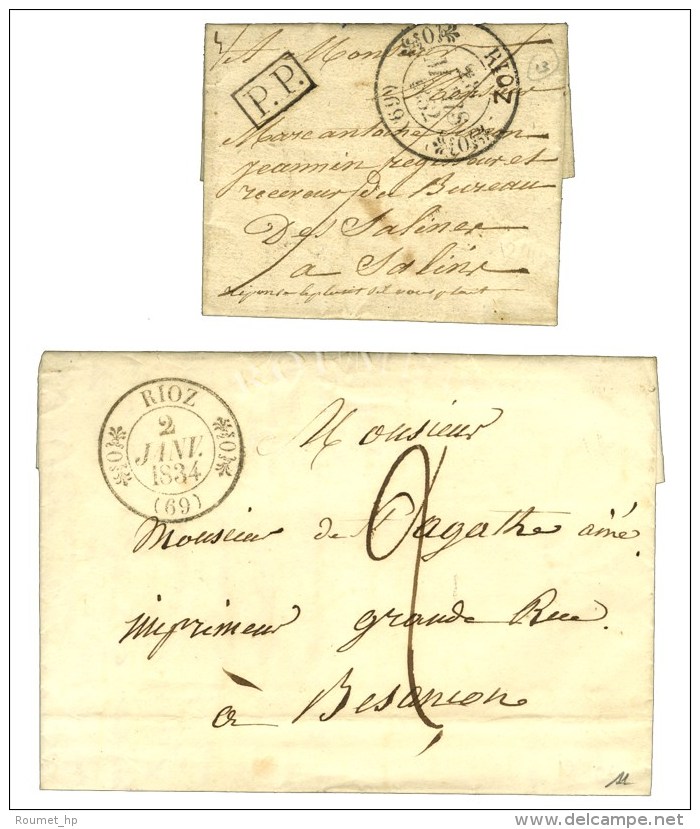 P.P.
RIOZ
(69)
A Monsieur
Monsieur
Marc antoine
jeannin regisseur et
receveur du Bureau
Des Salines
a Salins
réponse s'il vous plait
RIOZ
2
JANV.
1834
(69)
Monsieur
2
Monsieur de St Agathe ainé
imprimeur grande Rue.
à Besançon
Roumet_hp
delcampe.net